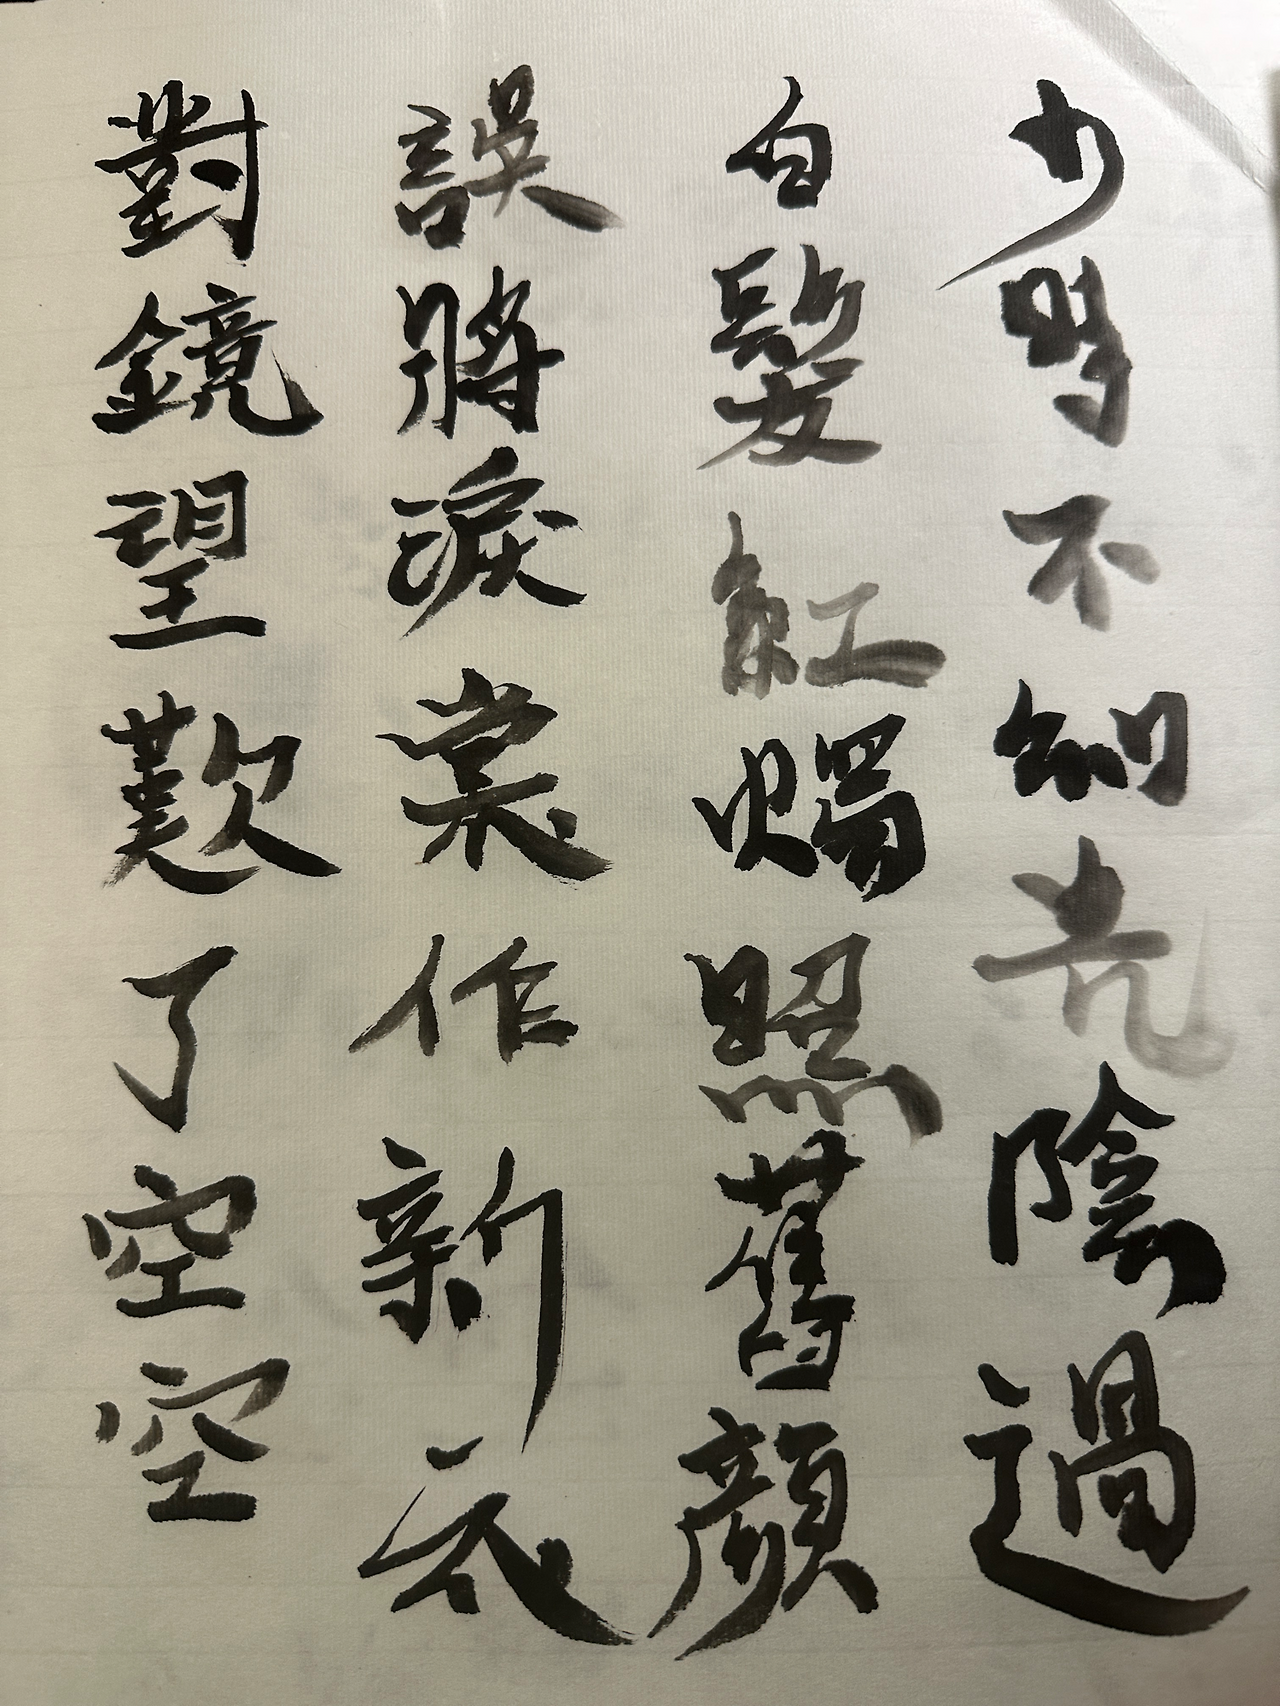 少時不知光陰過
白髮紅燭照舊顏
誤將淚裳作新衣
對鏡望歎了空空